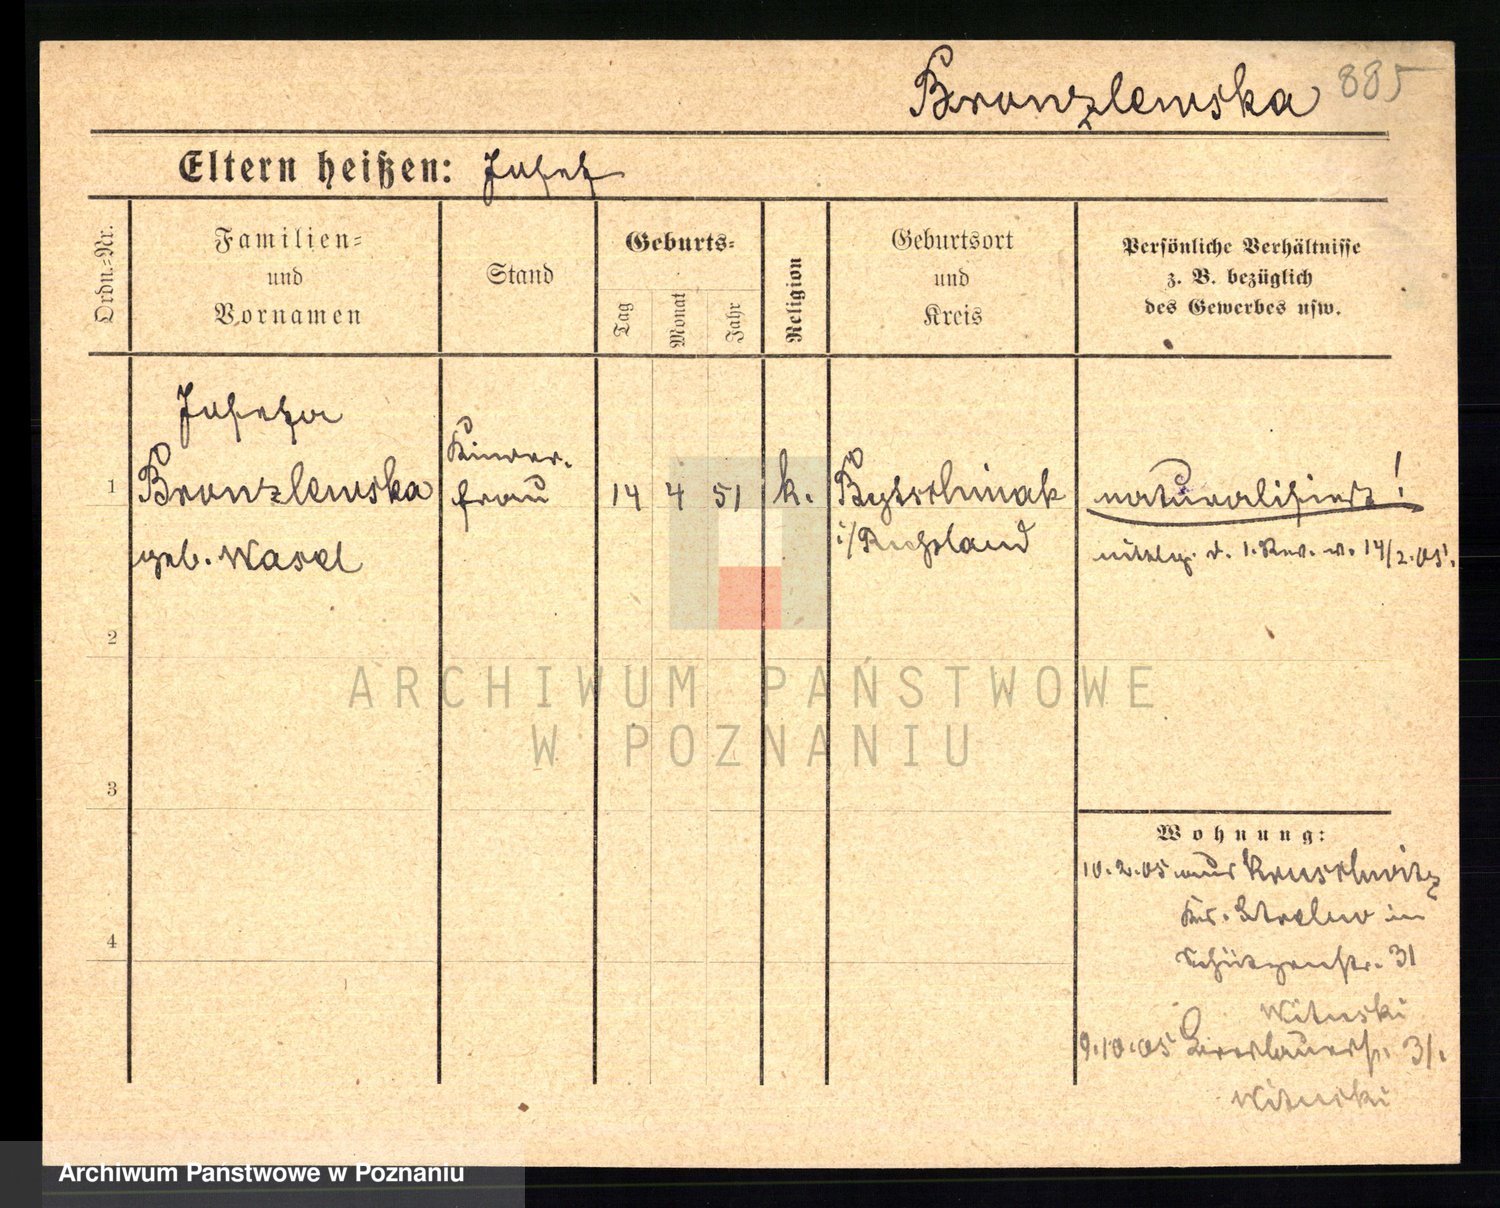 Bronzlewska 885
Eltern heißen: Josef
Ordn.-Nr.
Familien-
und
Vornamen
Stand
Geburts-
Tag
Monat
Jahr
Religion
Geburtsort
und
Kreis
Persönliche Verhältnisse
z. B. bezüglich
des Gewerbes usw.
1
Josefa
Bronzlewska
geb. Wasel
Kinder-
frau
14 4 51 k.
i/Russland
naturalisiert!
d. 1. Rev. v. 14/2.05.
2
3
4
Wohnung:
10.2.05 aus Kruschwitz
Kr. Strelno in
Schützenstr. 31
Wituski
9.10.05 Breslauerstr. 31.
Wituski
ARCHIWUM PAŃSTWOWE
W POZNANIU
Archiwum Państwowe w Poznaniu